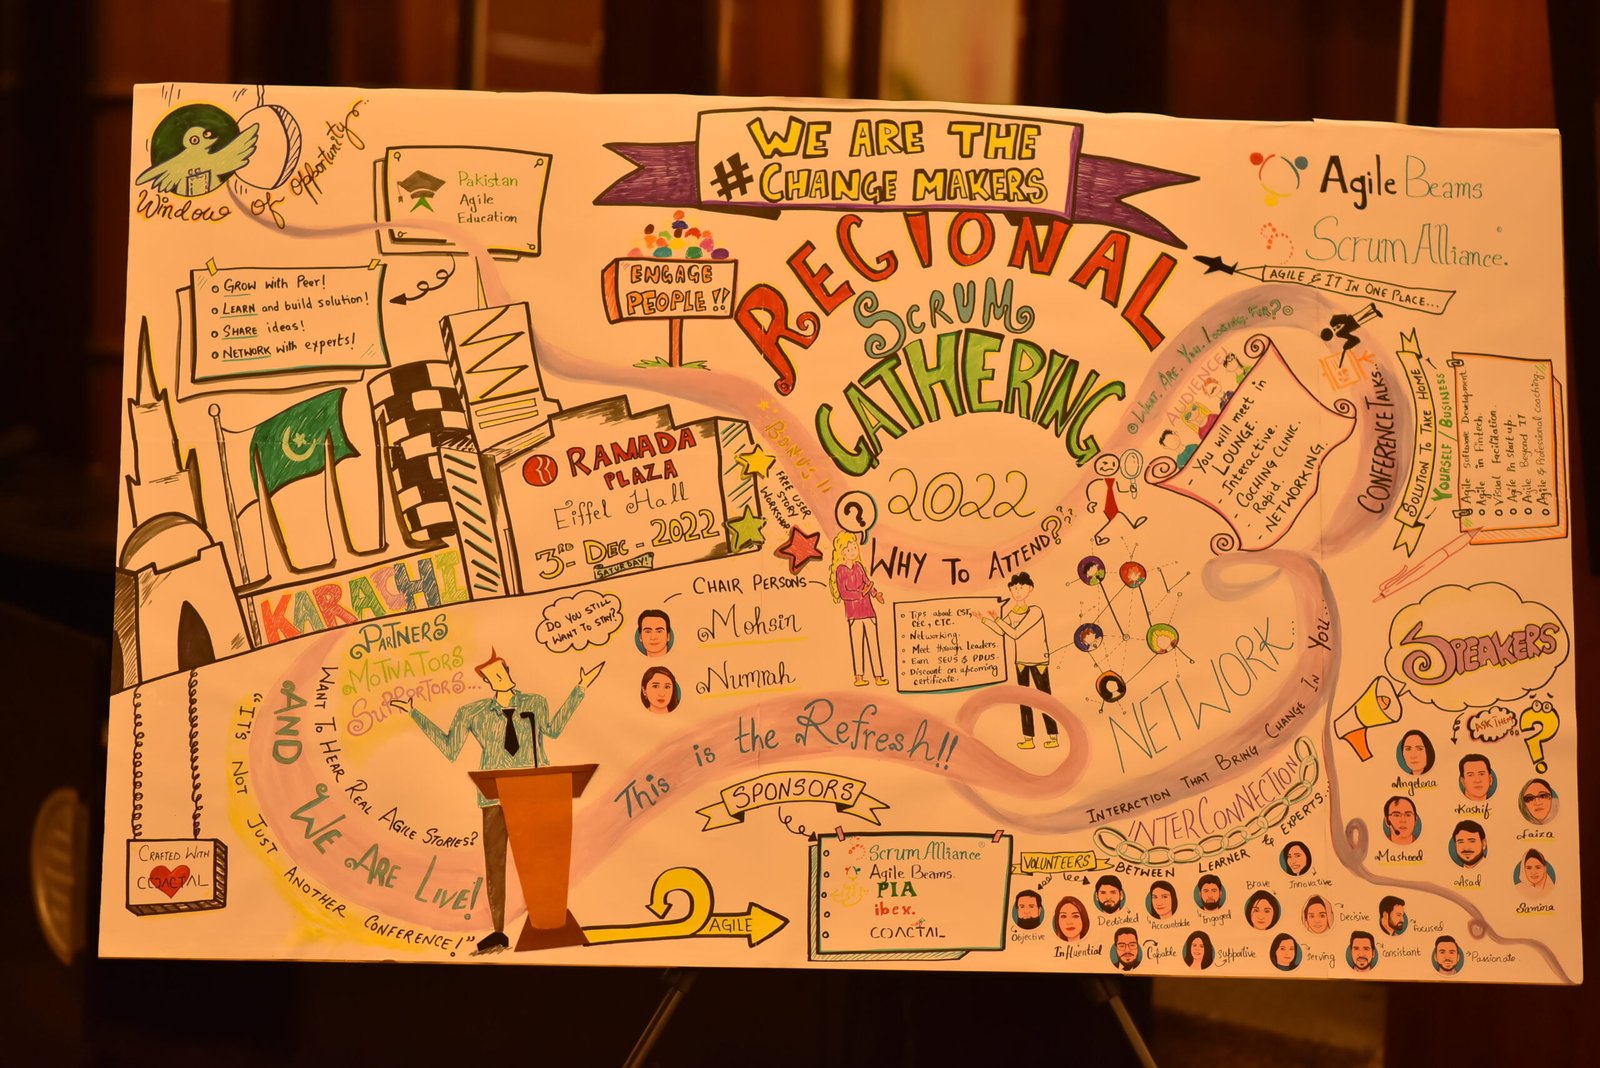 WE ARE THE
# CHANGE MAKERS
REGIONAL
SCRUM
GATHERING
2022
Window of Opportunity
Pakistan
Agile
Education
GROW with Peer!
LEARN and build solution!
SHARE ideas!
NETWORK with experts!
ENGAGE
PEOPLE!!
Agile Beams
Scrum Alliance
AGILE & IT IN ONE PLACE...
RAMADA
PLAZA
Eiffel Hall
3RD - DEC - 2022
SATURDAY!
KARACHI
BONUS!!
FREE USER
STORY
WORKSHOP
What. Are. You. Looking. For?
AUDIENCE
- You will meet in
LOUNGE.
- Interactive.
- COCHING CLINIC.
- Rapid
- NETWORKING.
CONFERENCE TALKS..
SOLUTION TO TAKE HOME
YOURSELF / BUSINESS
Agile software Development
Agile in Fintech.
Visual Facilitation.
Agile In start up.
Agile Beyond IT
Agile & Professional coaching
?
WHY TO ATTEND???
Tips about CST,
CEC, CTC.
Networking.
Meet through Leaders.
Earn SEUS & PDUS.
Discount on upcoming
certificate.
CHAIR PERSONS
Mohsin
Numrah
DO YOU STILL
WANT TO STAY?
PARTNERS
MOTIVATORS
SUPPORTORS...
WANT TO HEAR REAL AGILE STORIES?
AND WE ARE LIVE!
"IT'S NOT JUST ANOTHER CONFERENCE!"
This is the Refresh!!
NETWORK...
INTERACTION THAT BRING CHANGE IN YOU...
INTERCONNECTION
BETWEEN LEARNER & EXPERTS...
SPEAKERS
ASK THEM
?
Angelena
Kashif
Faiza
Masheod
Asad
Samina
CRAFTED WITH
COACTAL
AGILE
SPONSORS
Scrum Alliance
Agile Beams.
PIA
ibex.
COACTAL
VOLUNTEERS
Objective
Influential
Dedicated
Capable
Accountable
Supportive
Engaged
Brave
Serving
Innovative
Decisive
Consistant
Focused
Passionate